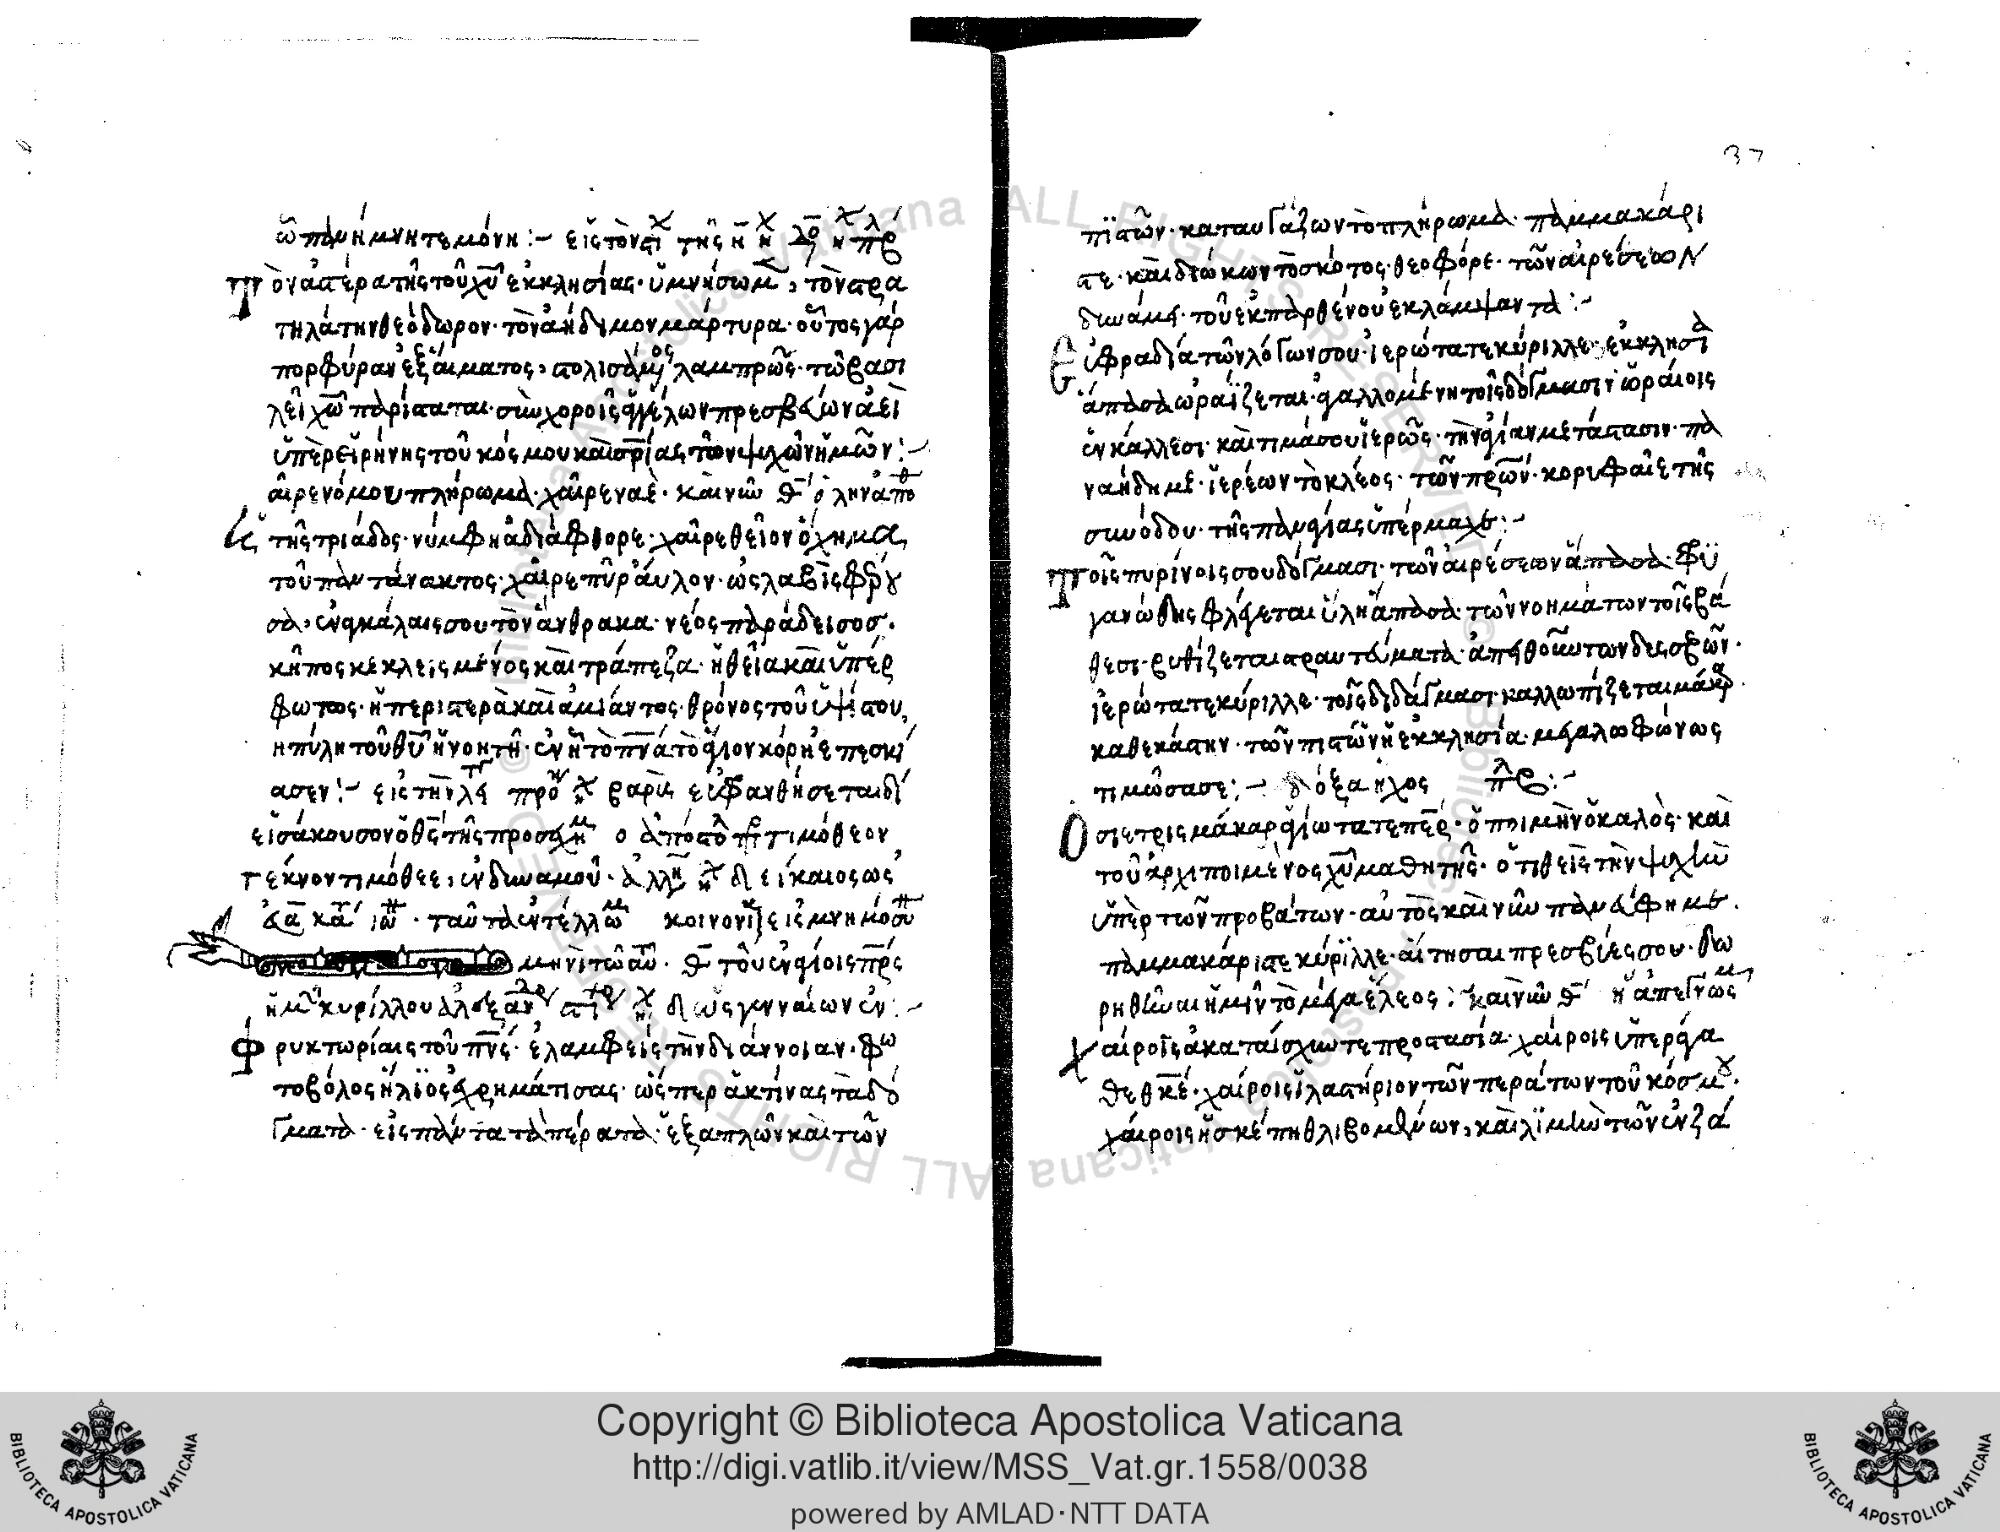 ὦ πανύμνητε μόνη :- εἰς τὸν στίχ
Τὸν ἀστέρα τῆς τοῦ χυ ἐκκλησίας· ὑμνήσωμ, τὸν στρα
τηλάτην θεόδωρον· τὸν ἀήδιμον μάρτυρα· οὗτος γάρ
πορφύραν ἐξ αἵματος, στολισάμενος λαμπρῶς· τῶ βασι
λεῖ χω παρίσταται· σὺν χοροῖς ἀγγέλων πρεσβεύων ἀεὶ
ὑπὲρ εἰρήνης τοῦ κόσμου καὶ σρίας τῶν ψυχῶν ἡμῶν :-
αῖρε νόμου πλήρωμα· χαῖρε ναὲ· καὶ νῦν ὅλην ἀπο
τῆς τριάδος· νύμφη ἀδιάφθορε· χαῖρε θεῖον ὄχημα
τοῦ παντάνακτος· χαῖρε πῦρ ἄυλον· ὡς λαβὶς φέρου
σα, ἐν ἀγκάλαις σου τὸν ἄνθρακα· νέος παράδεισος·
κῆπος κεκλεισμένος καὶ τράπεζα· ἡ θεία καὶ ὑπέρ
φωτος· ἡ περιστερὰ καὶ ἀμίαντος· θρόνος τοῦ ὑψίστου,
ἡ πύλη τοῦ θυ ἡ νοητὴ· ἐν ῇ τὸ πνα τὸ ἅγιον κόρη ἐπεσκί
ασεν :- εἰς τὴν εὐφανθήσεται δί
εἰσάκουσον ὁ θς τῆς προσευχῆ ὁ ἀπόστο τιμόθεον
τέκνον τιμόθεε, ἐνδυναμοῦ· δίκαιος ὡς
ταῦτα ἐντέλλομ κοινονι εἰς μνημόσυ
μηνὶ τῶ αυ· τοῦ ἐν ἁγίοις πρς
ἡμ κυρίλλου ὡς γενναίων ἐν :-
Φρυκτωρίαις τοῦ πνς· ἐλαμφεὶς τὴν διάννοιαν· φω
τοβόλος ἥλιος ἐχρημάτισας· ὡς περ ἀκτίνας τὰ δό
γματα· εἰς πάντα τὰ πέρατα· ἐξαπλῶν καὶ τῶν
37
πιστῶν· καταυγάζων τὸ πλήρωμα· παμμακάρι
στε· καὶ διώκων τὸ σκότος· θεοφόρε· τῶν αἱρέσεων
δυνάμει· τοῦ ἐκ παρθένου ἐκλάμψαντα :-
Εὐφραδία τῶν λόγων σου· ἱερώτατε κύριλλε· ἐκκλησία
ἅπασα ὡραΐζεται· ἀγαλλομένη τοῖς δόγμασιν ὡραίοις
ἐν κάλλεσι· καὶ τιμᾶ σου ἱερῶς· τὴν ἁγίαν μετάστασιν· πα
ναήδημε· ἱερέων τὸ κλέος· τῶν πρων· κορυφαῖε τῆς
συνόδου· τῆς παναγίας ὑπέρμαχε :-
Τοῖς πυρίνοις σου δόγμασι· τῶν αἱρέσεων ἅπασα· φρυ
γανώδης φλέγεται ὕλη ἅπασα· τῶν νοημάτων τοῖς βά
θεσι· βυθίζεται στρατεύματα· ἀπειθούντων δυσσεβῶν·
ἱερώτατε κύριλλε· τοῖς διδάγμασι· καλλωπίζεται μάκαρ
καθ ἑκάστην· τῶν πιστῶν ἡ ἐκκλησία· μεγαλοφώνως
τιμῶσα σε :- δόξα ἦχος
Ὅσιε τρισμάκαρ ἁγιώτατε περ· ὁ ποιμὴν ὁ καλὸς· καὶ
τοῦ ἀρχιποιμένος χυ μαθητῆς· ὁ τιθεὶς τὴν ψυχὴν
ὑπὲρ τῶν προβάτων· αὐτὸς καὶ νῦν πανεύφημε·
παμμακάριστε κύριλλε· αἴτησαι πρεσβίες σου· δω
ρηθῆναι ἡμῖν τὸ μέγα ἔλεος :- καὶ νῦν ἡ ἀπεγνωσμ
Χαίροις ἀκαταίσχυντε προστασία· χαίροις ὑπεράγα
θε θκε· χαίροις ἱλαστήριον τῶν περάτων τοῦ κόσμου·
χαίροις ἡ σκέπη θλιβομένων, καὶ λιμὴν τῶν ἐν ζά
Copyright © Biblioteca Apostolica Vaticana
http://digi.vatlib.it/view/MSS_Vat.gr.1558/0038
powered by AMLAD·NTT DATA
BIBLIOTECA APOSTOLICA VATICANA
BIBLIOTECA APOSTOLICA VATICANA